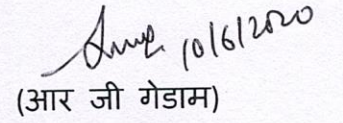 10/6/2020
(आर जी गेडाम)